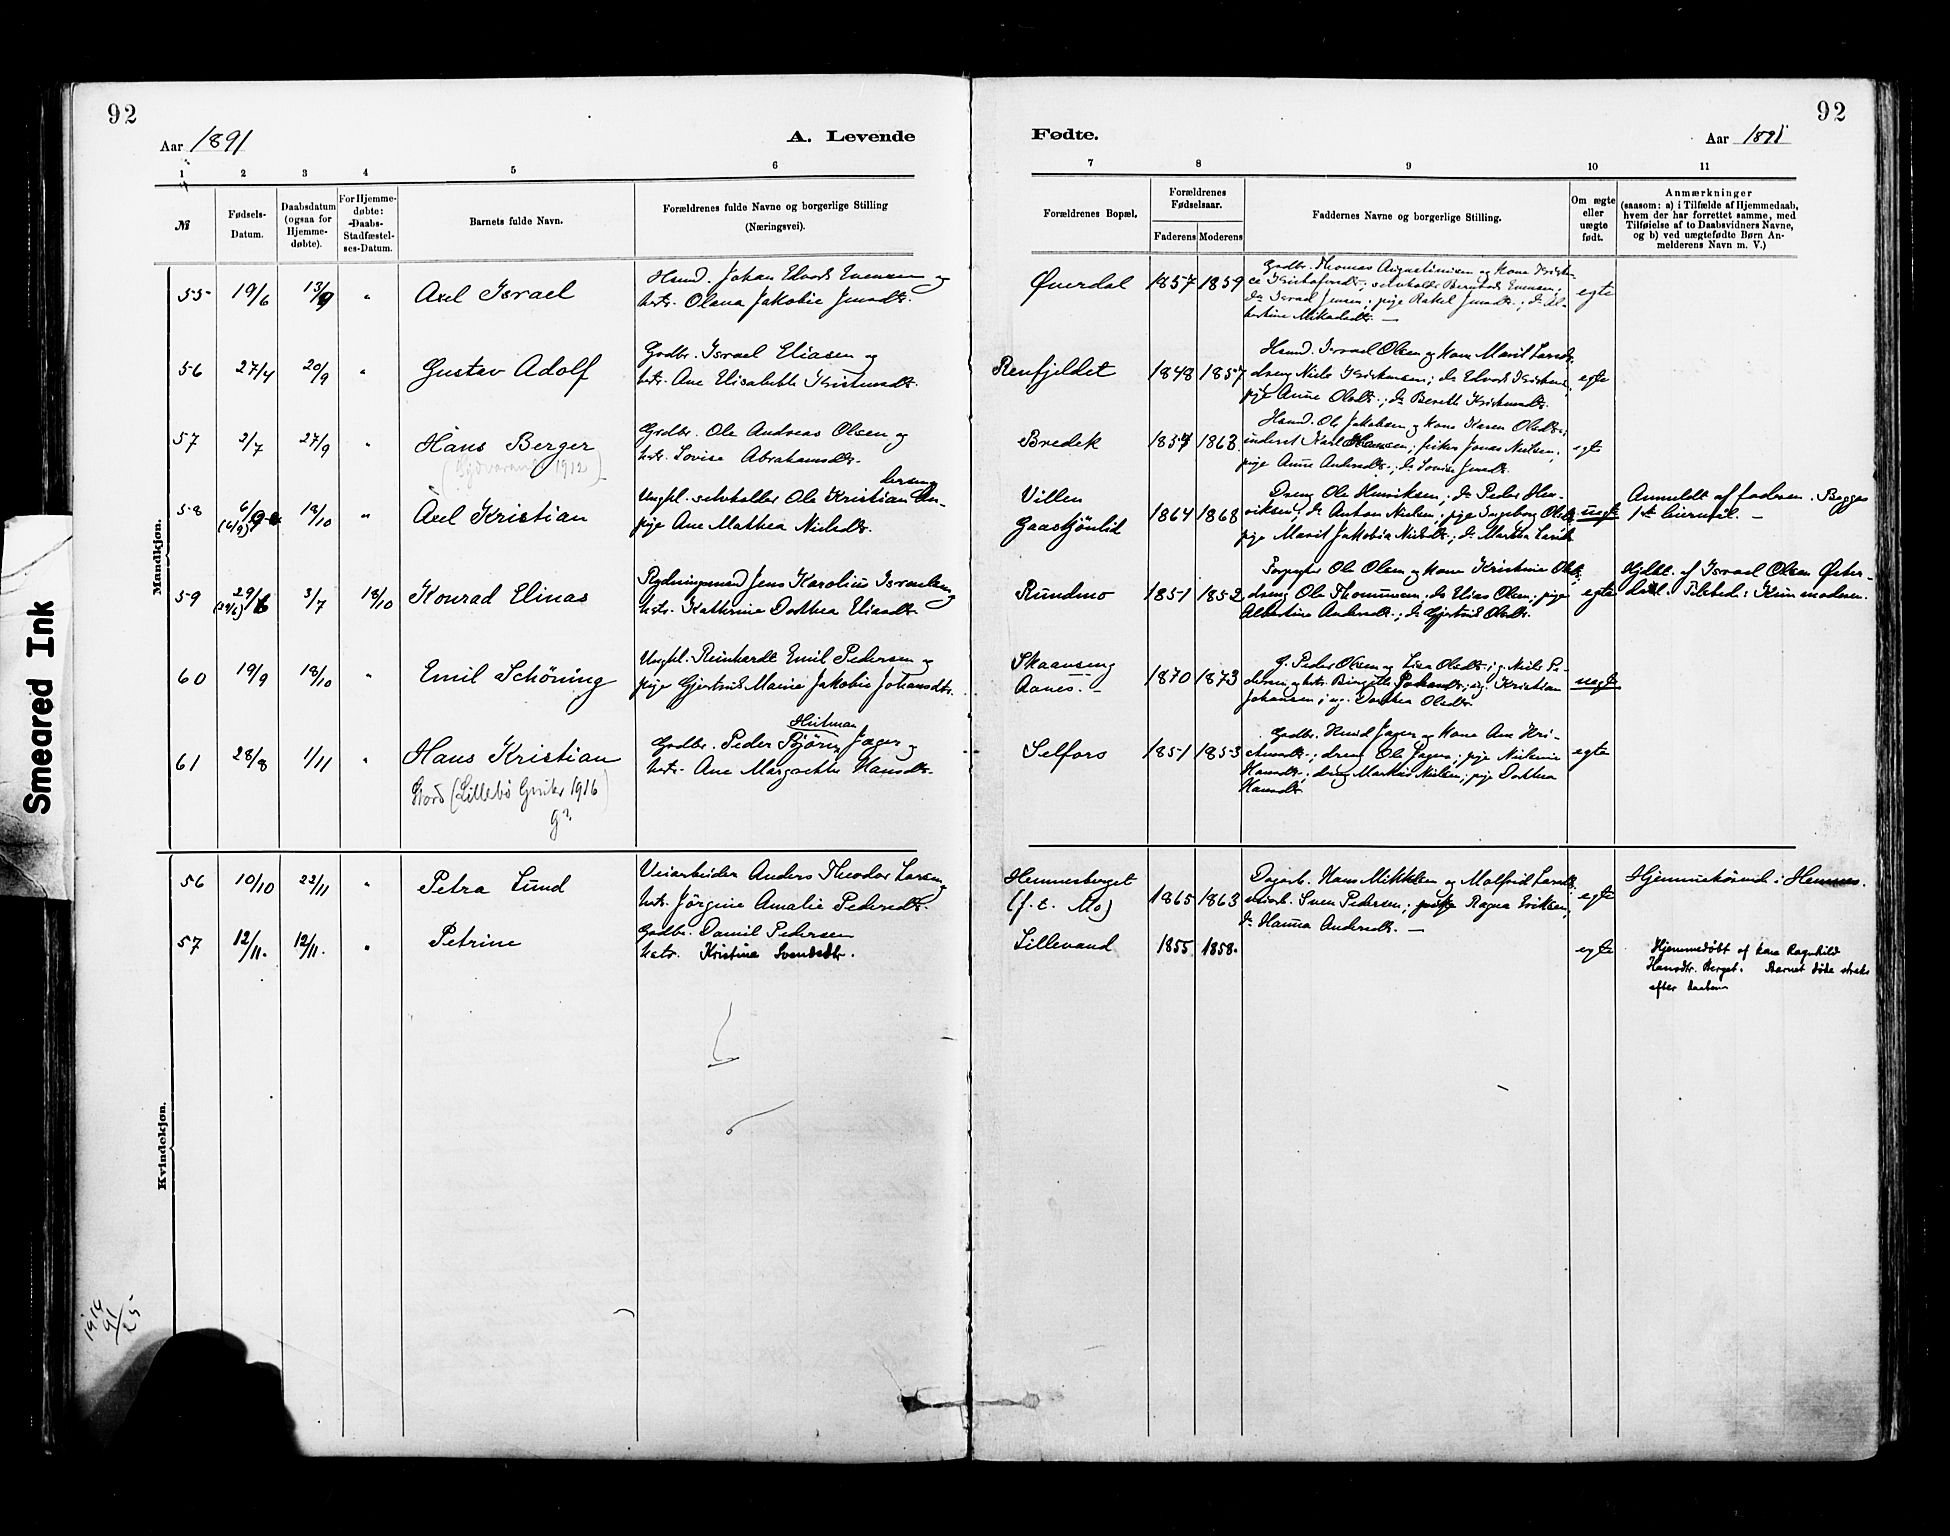 92
92
Aar 1891
A. Levende
Fødte.
Aar 1891
1 2 3 4 5 6
7 8 9 10 11
№
Fødsels-
Datum.
Daabsdatum
(ogsaa for
Hjemme-
døbte).
For Hjemme-
døbte:
Daabs-
Stadfæstel-
ses-Datum.
Barnets fulde Navn.
Forældrenes fulde Navne og borgerlige Stilling
(Næringsvei).
Forældrenes Bopæl.
Forældrenes
Fødselsaar.
Faderens Moderens
Faddernes Navne og borgerlige Stilling.
Om ægte
eller
uægte
født.
Anmærkninger
(saasom: a) i Tilfælde af Hjemmedaab,
hvem der har forrettet samme, med
Tilføielse af to Daabsvidners Navne,
og b) ved uægtefødte Børn An-
melderens Navn m. V.)
Mandkjøn.
55 19/6 13/9 "
Axel Israel
Hsmd. Johan Edvard Evensen og
hstr. Olena Jakobie Jensdtr.
Øverdal
1857 1859
Grdbr. Thomas Augustinusen og kone
selvholder Bernhard Evensen;
do Israel Jensen; pige Rakel Jensdtr.; do Al-
bertine Mikaelsdtr. —
egte
56 27/4 20/9 "
Gustav Adolf
Grdbr. Israel Eliasen og
hstr. Ane Elisabeth Kristensdtr.
Renfjeldet
1848 1857
Hsmd. Israel Olsen og kone Marit Larsdtr.
dreng Niels Kristensen; do Edvard Kristensen
pige Anne Olsdtr.; do Bereth Kristensdtr.
egte
57 2/7 27/9 "
Hans Berger
(Sydvaranger 1912)
Grdbr. Ole Andreas Olsen og
hstr. Lovise Abrahamsdtr.
Bredek
1857 1863
Hsmd. Ole Jakobsen og kone Karen Olsdtr.;
inderst Karl Hansen; Jonas Nielsen;
pige Anne Andersdtr.; do Lovise Jensdtr.
egte
58 6/9 (6/9) 18/10 "
Axel Kristian
Ungkl. selvholder Ole Kristian An-
dersen
pige Ane Mathea Nielsdtr.
Villen
Gaasтjønlid
1864 1868
Dreng Ole Henriksen; do Peder Hen-
riksen; do Anton Nielsen; pige Ingeborg Olsdtr.
pige Marit Jakobia Nielsdtr.; do Martha Larsdtr.
uegte
Anmeldt af faderen. Begges
1ste leiermaal. —
59 29/6 (29/6) 3/7 18/10
Konrad Elinas
Rydningsmand Jens Karolius Israelsen og
hstr. Kathrine Dorthea Eliasdtr.
Rundmo
1851 1852
Forpagter Ole Olsen og kone Kristine Olsdtr.;
dreng Ole Thomassen; do Elias Olsen; pige
Albertine Andersdtr.; do Gjertrud Olsdtr.
egte
Hjdbt. af Israel Olsen Øster-
dal. Tilsted: Kun moderen.
60 19/9 18/10 "
Emil Schöning
Ungkl. Reinhardt Emil Pedersen og
pige Gjertrud Marie Jakobie Johansdtr.
Skaanseng
Aanes. —
1870 1873
G. Peder Olsen og Lisa Olsdtr.; g. Niels Pe-
dersen og hstr. Birgitte Johansdtr.; ug. Kristian
Johansen; ug. Dorthea Olsdtr.
uegte
61 28/8 1/11 "
Hans Kristian
Stord (Lillebö Gruber 1916)
g?
Heitman
Grdbr. Peder Bjørn Jager og
hstr. Ane Margrethe Hansdtr.
Selfors
1851 1853
Grdbr. Hemid Jager og kone Ane Kri-
stensdtr.; dreng Ole Jager; pige Nielsine
Hansdtr.; dreng Markus Nielsen; pige Dorthea
Hansdtr.
egte
Kvindekjøn.
56 10/10 22/11 "
Petra Lund
Veiarbeider Anders Theodor Larsen og
hstr. Jørgine Amalie Pedersdtr.
Hemnesberget
(f. t. Mo)
1865 1863
Dagarb. Hans Mikkelsen og Malfrid Larsdtr.
veiarb. Sven Pedersen; pige Ragna Eriksen;
do Hanna Andersdtr. —
egte
Hjemmehørende i Hemnes.
57 12/11. 12/11. "
Petrine
Grdbr. Daniel Pedersen
hstr. Kristina Svendsdtr.
Lillevand
1855 1858.
egte
Hjemmedøbt af kone Ragnhild
Hansdtr. Berget. Barnet døde straks
efter daaben
Smeared Ink